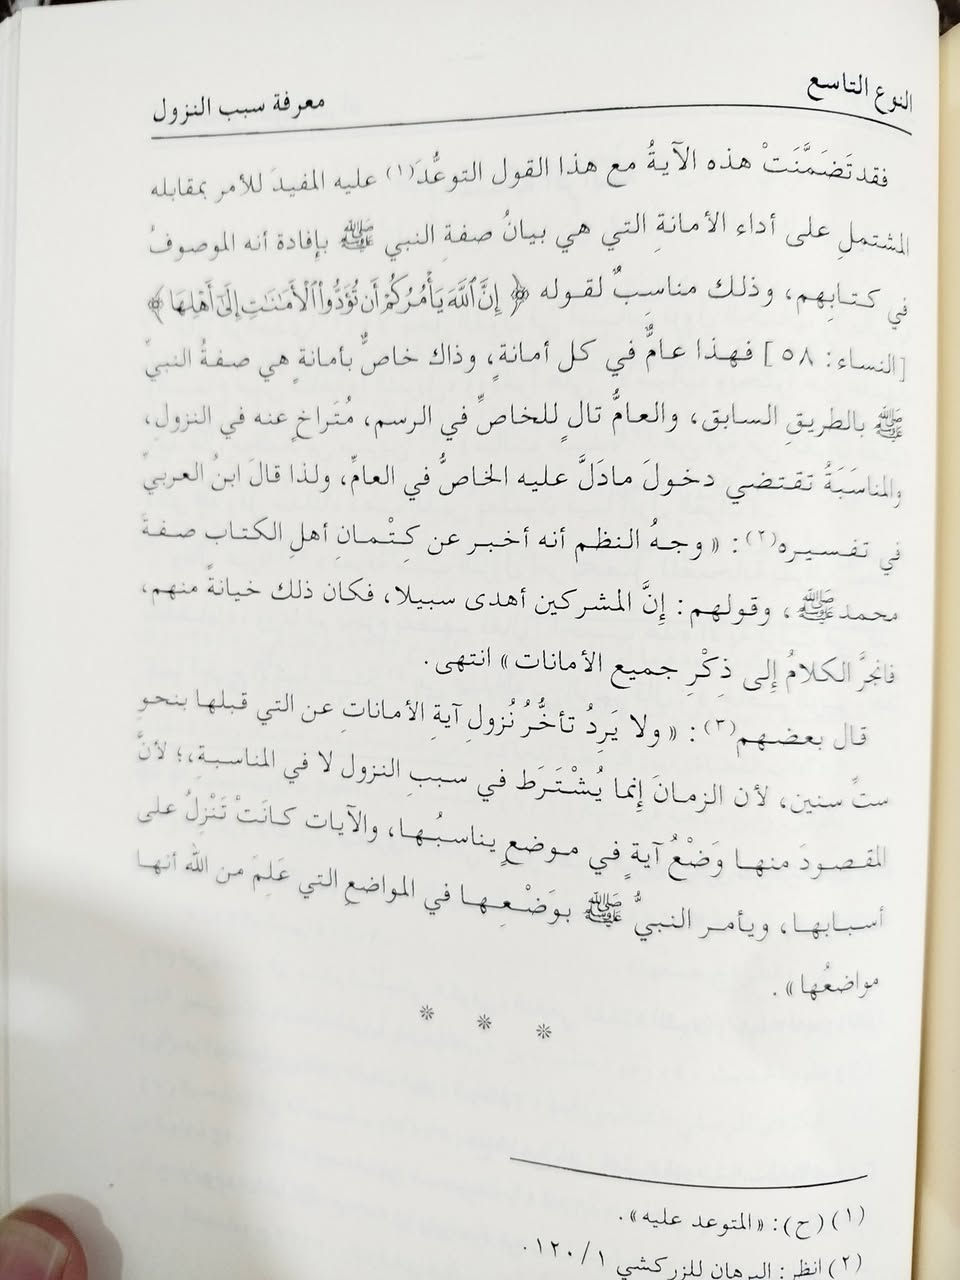 النوع التاسع
معرفة سبب النزول
فقد تَضَمَّنَتْ هذه الآيةُ مع هذا القول التوعُّدَ(١) عليه المفيدَ للأمر بمقابله
المشتملِ على أداء الأمانةِ التي هي بيانُ صفةِ النبي ﷺ بإفادة أنه الموصوفُ
في كتابِهم، وذلك مناسبٌ لقوله ﴿إِنَّ ٱللَّهَ يَأْمُرُكُمْ أَن تُؤَدُّوا۟ ٱلْأَمَـٰنَـٰتِ إِلَىٰٓ أَهْلِهَا﴾
[النساء: ٥٨] فهذا عامٌّ في كل أمانةٍ، وذاك خاصٌّ بأمانةٍ هي صفةُ النبيِّ
ﷺ بالطريقِ السابق، والعامُّ تالٍ للخاصِّ في الرسم، مُتَراخٍ عنه في النزولِ،
والمناسَبَةُ تقتضي دخولَ مادَلَّ عليه الخاصُّ في العامِّ، ولذا قالَ ابنُ العربيِّ
في تفسيره(٢): «وجهُ النظم أنه أخبر عن كِتْمانِ أهلِ الكتاب صفةَ
محمد ﷺ، وقولهم: إِنَّ المشركين أهدى سبيلا، فكان ذلك خيانةً منهم،
فانجرَّ الكلامُ إلى ذِكْرِ جميع الأمانات» انتهى.
قال بعضهم(٣): «ولا يَرِدُ تأخُّرُ نُزولِ آيةِ الأماناتِ عن التي قبلها بنحوِ
ستِّ سنين، لأن الزمانَ إنما يُشْتَرَط في سببِ النزول لا في المناسبةِ،؛ لأنَّ
المقصودَ منها وَضْعُ آيةٍ في موضعٍ يناسبُها، والآيات كانَتْ تَنْزِلُ على
أسبابها، ويأمر النبيُّ ﷺ بوَضْعِها في المواضعِ التي عَلِمَ من الله أنها
مواضعُها».
* * *
(١) (ح): «المتوعد عليه».
(٢) انظر: البرهان للزركشي ١/ ١٢٠.